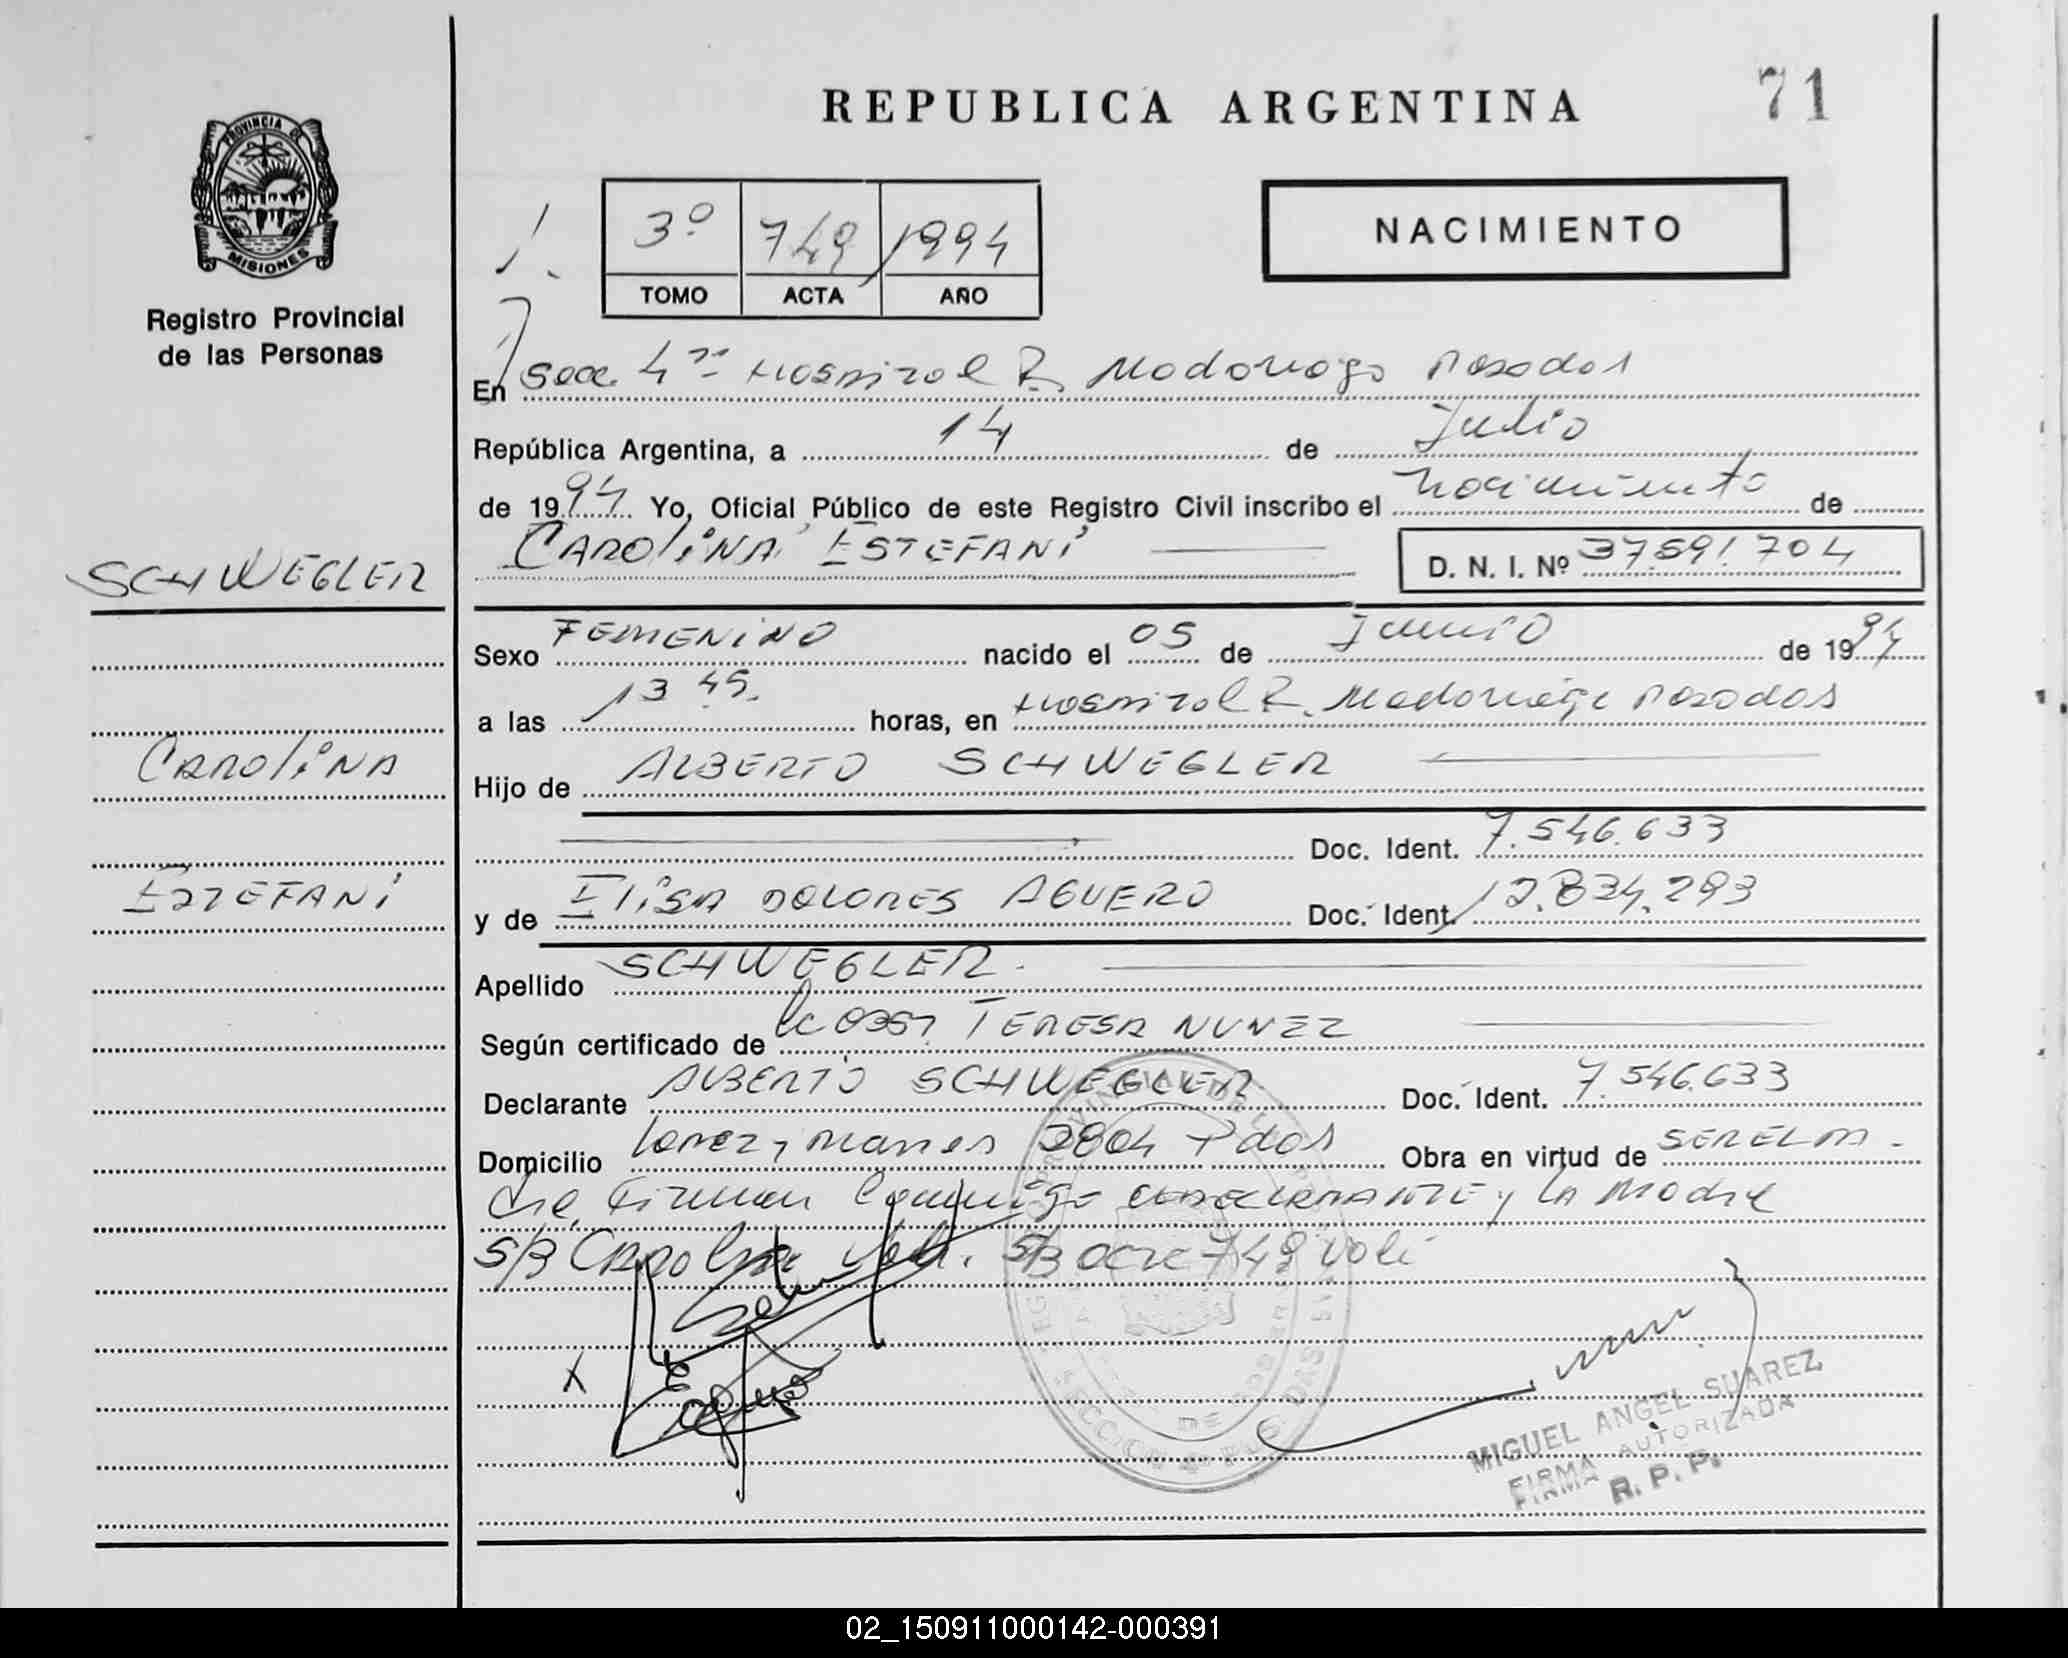 REPUBLICA ARGENTINA
71
PROVINCIA DE
MISIONES
Registro Provincial
de las Personas
3º 749 1994
TOMO ACTA AÑO
NACIMIENTO
En Secc. 4ª Hospital R. Madariaga Posadas
República Argentina, a 14 de Julio
de 1994 Yo, Oficial Público de este Registro Civil inscribo el nacimiento de
CAROLINA ESTEFANI
D. N. I. Nº 37.591.704
SCHWEGLER
Sexo FEMENINO nacido el 05 de Junio de 1994
a las 13 45. horas, en Hospital R. Madariaga Posadas
CAROLINA
Hijo de ALBERTO SCHWEGLER
Doc. Ident. 7.546.633
ESTEFANI
y de ELISA DOLORES AGUERO Doc. Ident. 12.834.293
Apellido SCHWEGLER.
Según certificado de TERESA NUNEZ
Declarante ALBERTO SCHWEGLER Doc. Ident. 7.546.633
Domicilio Lopez y Planes 2804 Pdas Obra en virtud de SER EL PA-
dre, Firman conmigo declarante y la Madre
S/B Carolina Vale. S/B acta 749 vale
MIGUEL ANGEL SUAREZ
FIRMA AUTORIZADA
R. P. P.
02_150911000142-000391